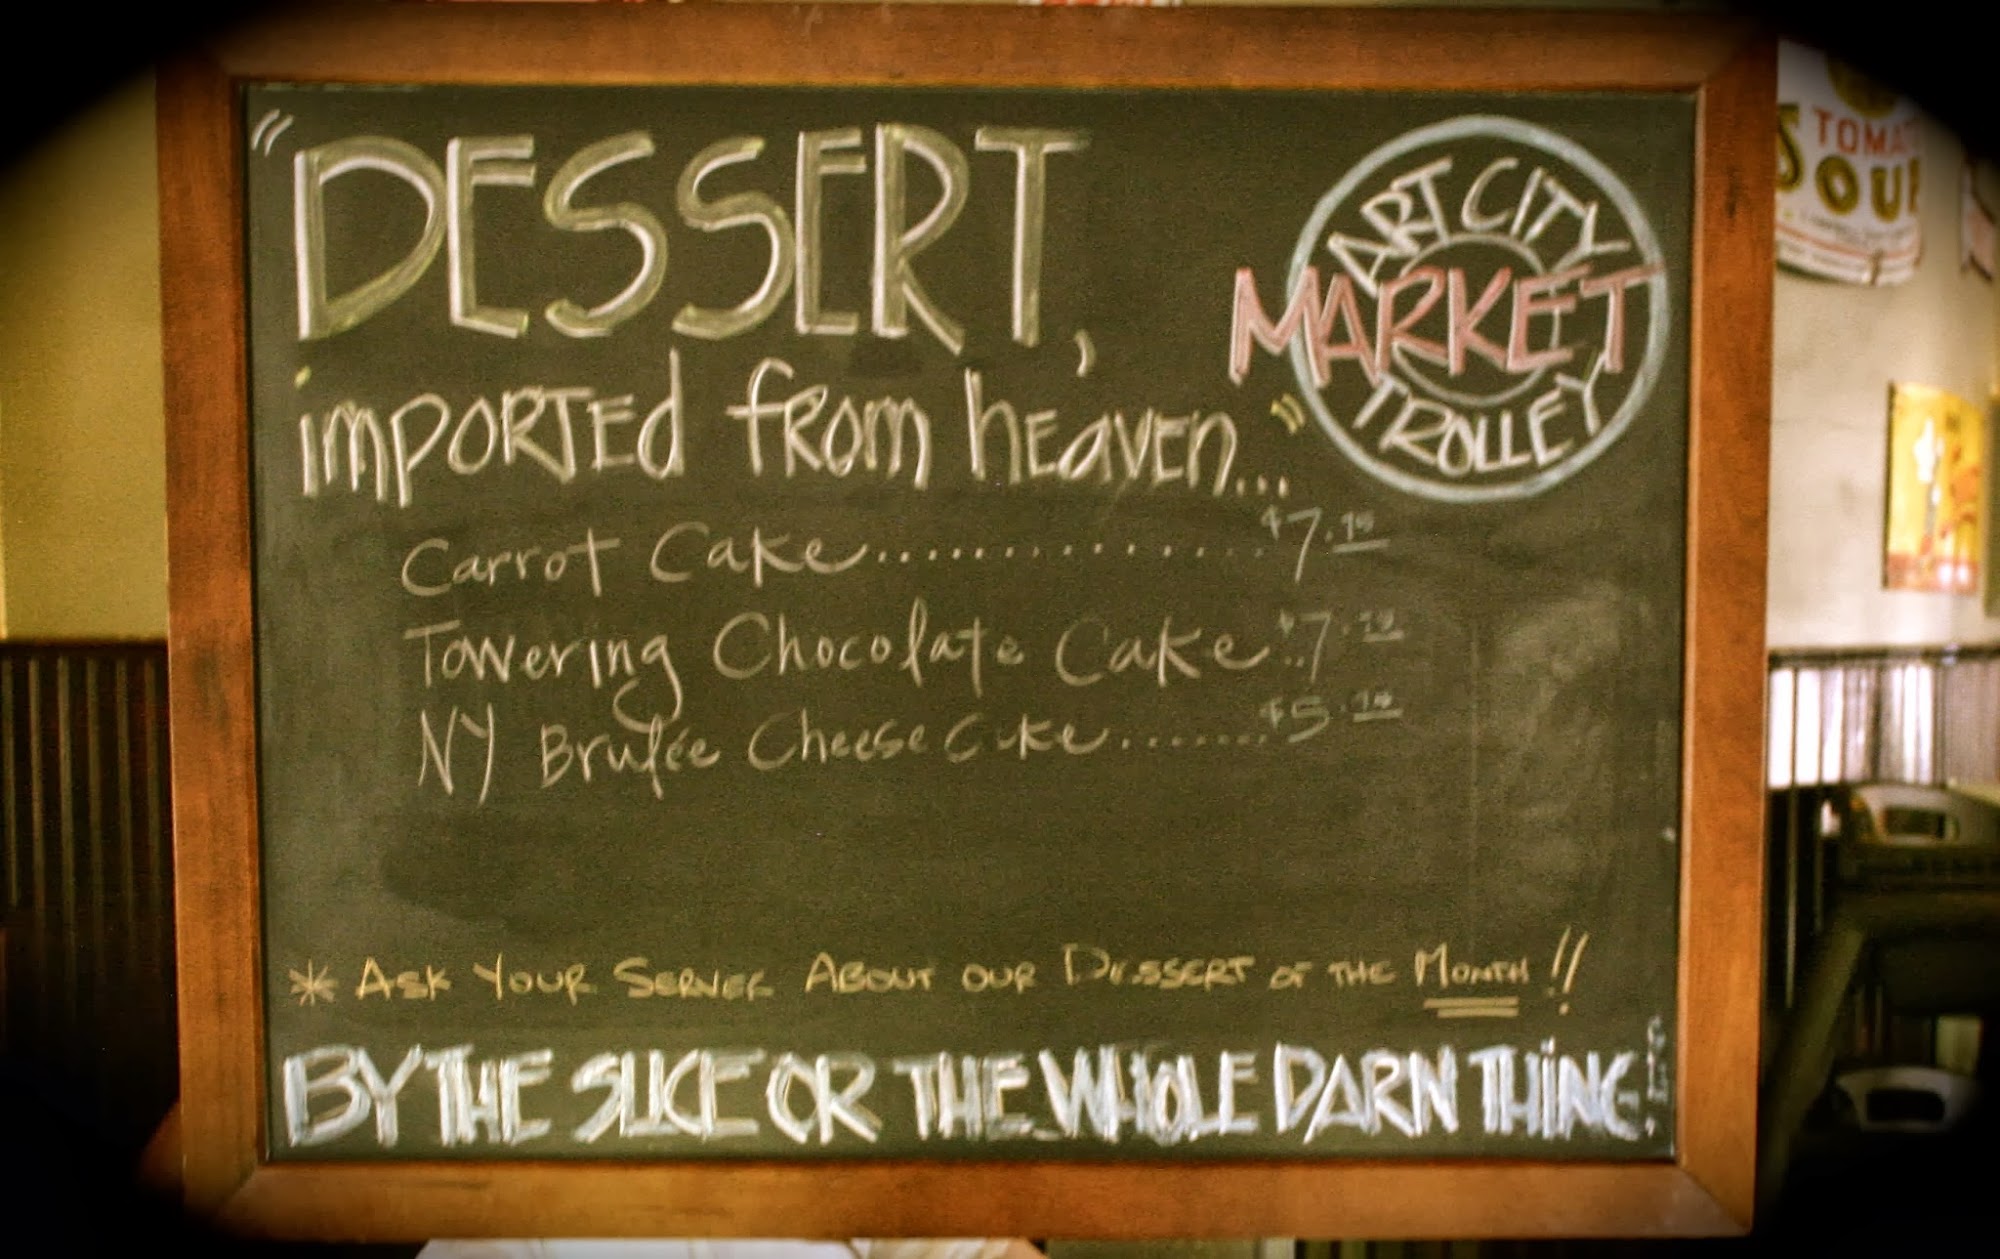 "DESSERT,
imported from heaven..."
ART CITY
MARKET
TROLLEY
Carrot Cake.................$7.
Towering Chocolate Cake..$7.
NY Brulée Cheese Cake........$5.
* ASK YOUR SERVER ABOUT OUR DESSERT OF THE MONTH!!
BY THE SLICE OR THE WHOLE DARN THING!
TOMA
SOUP